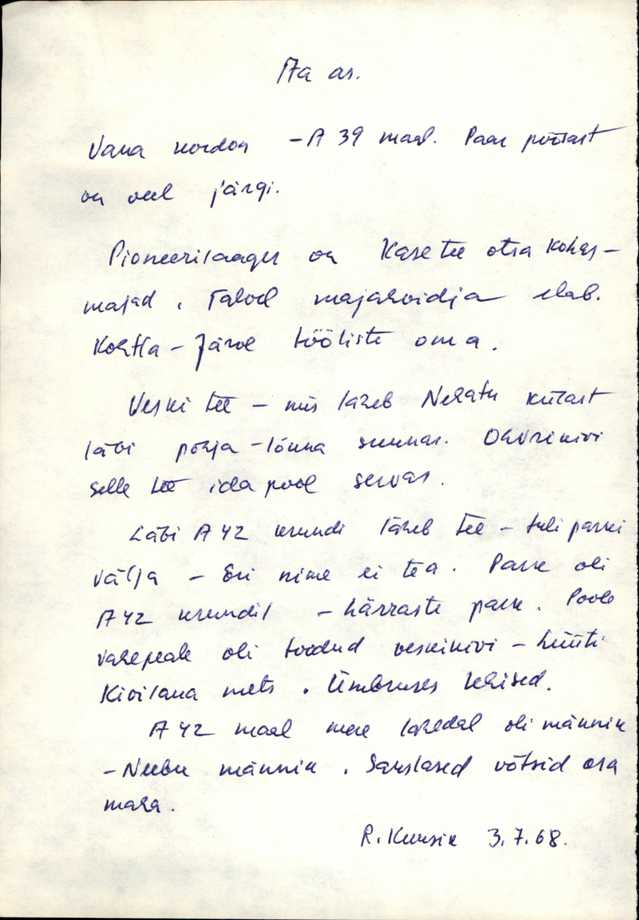 Aa as.
Vana kordon - A 39 maal. Paar põõsast
on veel järgi.
Pioneerilaager on Kase tee otsa kohas -
majad. Talvel majahoidja elab.
Kohtla-Järve tööliste oma.
Veski tee - mis läheb Neeatu külast
läbi põhja-lõuna suunas. Ohvrikivi
selle tee ida pool servas.
Läbi A 42 krundi läheb tee - tuli parki
välja - Eri nime ei tea. Park oli
A 42 krundil - härraste park. Poole
vahepeale oli toodud veskikivi - hüüti
Kivilana mets. Ümbruses lehised.
A 42 maal mere lahedal oli männik
- Neebu männik. Sakslased võtsid osa
maha.
3.7.68.